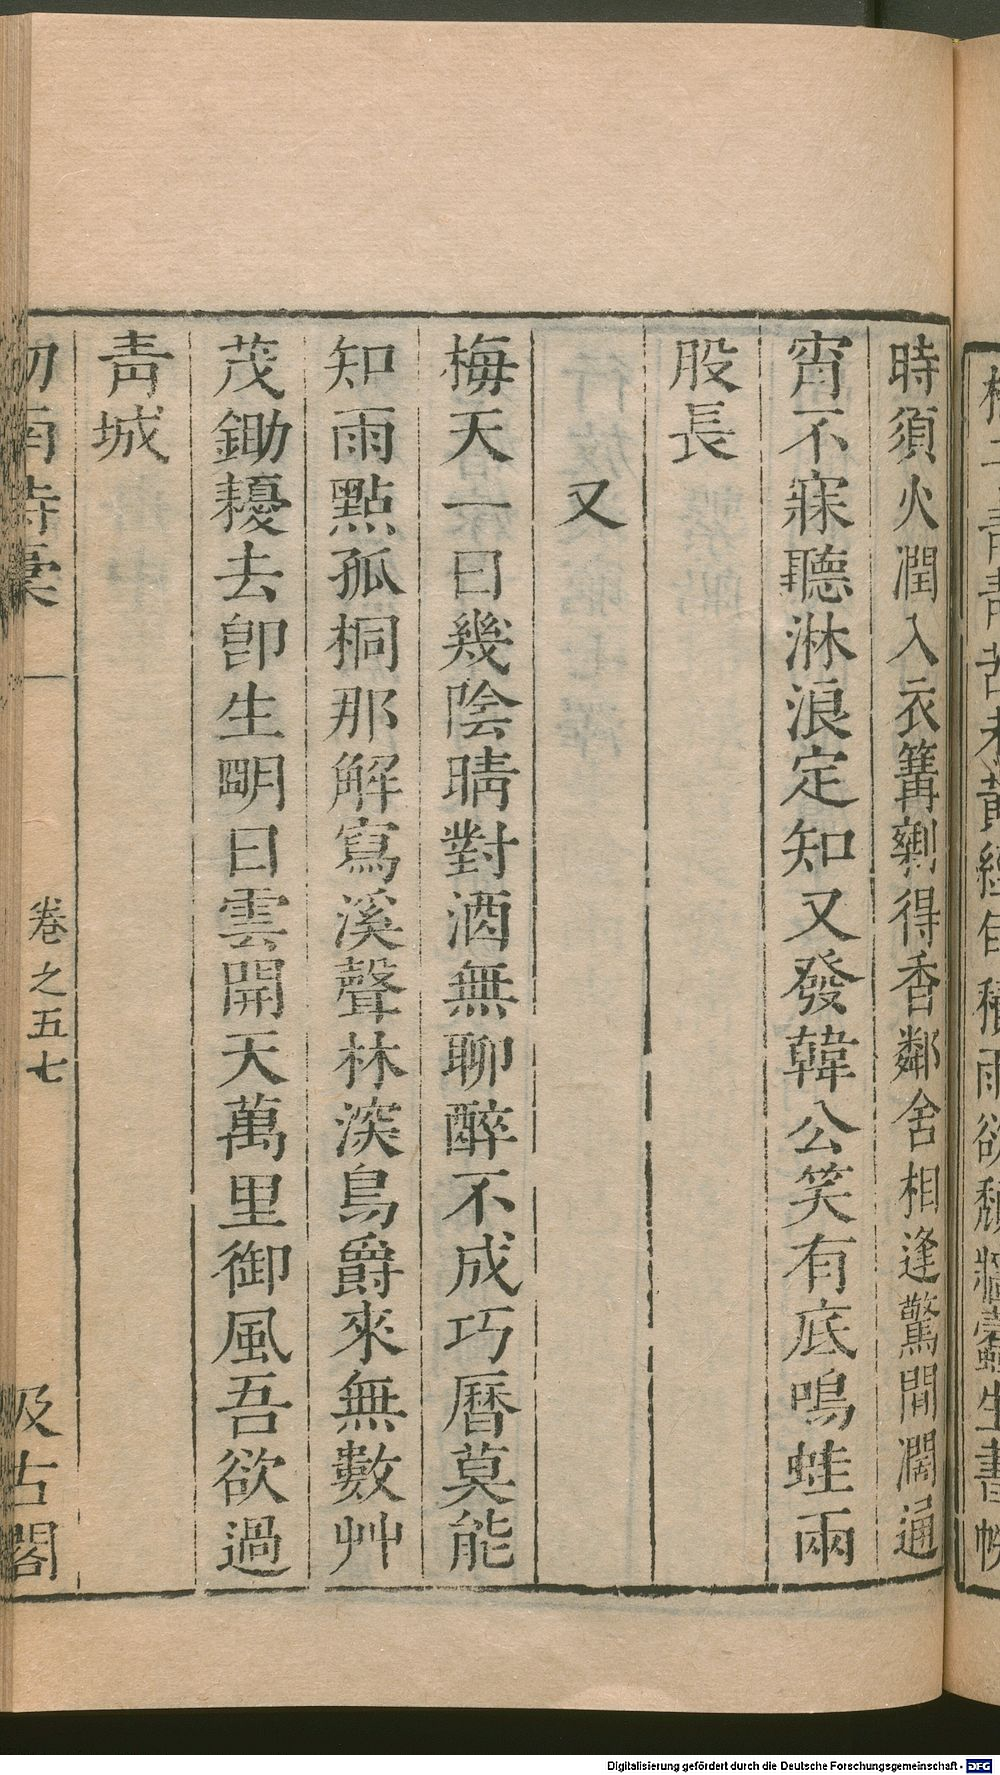 時須火潤入衣篝剩得香鄰舍相逢驚間濶通
宵不寐聽淋浪定知又發韓公笑有底鳴蛙兩
股長
又
梅天一日幾陰晴對酒無聊醉不成巧曆莫能
知雨點孤桐那解寫溪聲林深鳥爵來無數艸
茂鋤耰去卽生明日雲開天萬里御風吾欲過
靑城
劍南詩稾
卷之五七
汲古閣
Digitalisierung gefördert durch die Deutsche Forschungsgemeinschaft - DFG